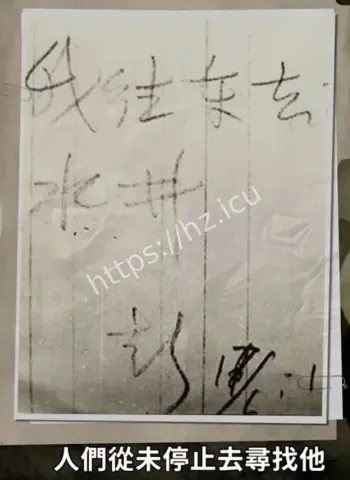 我往东去
水井
https://hz.icu
彭
人們從未停止去尋找他